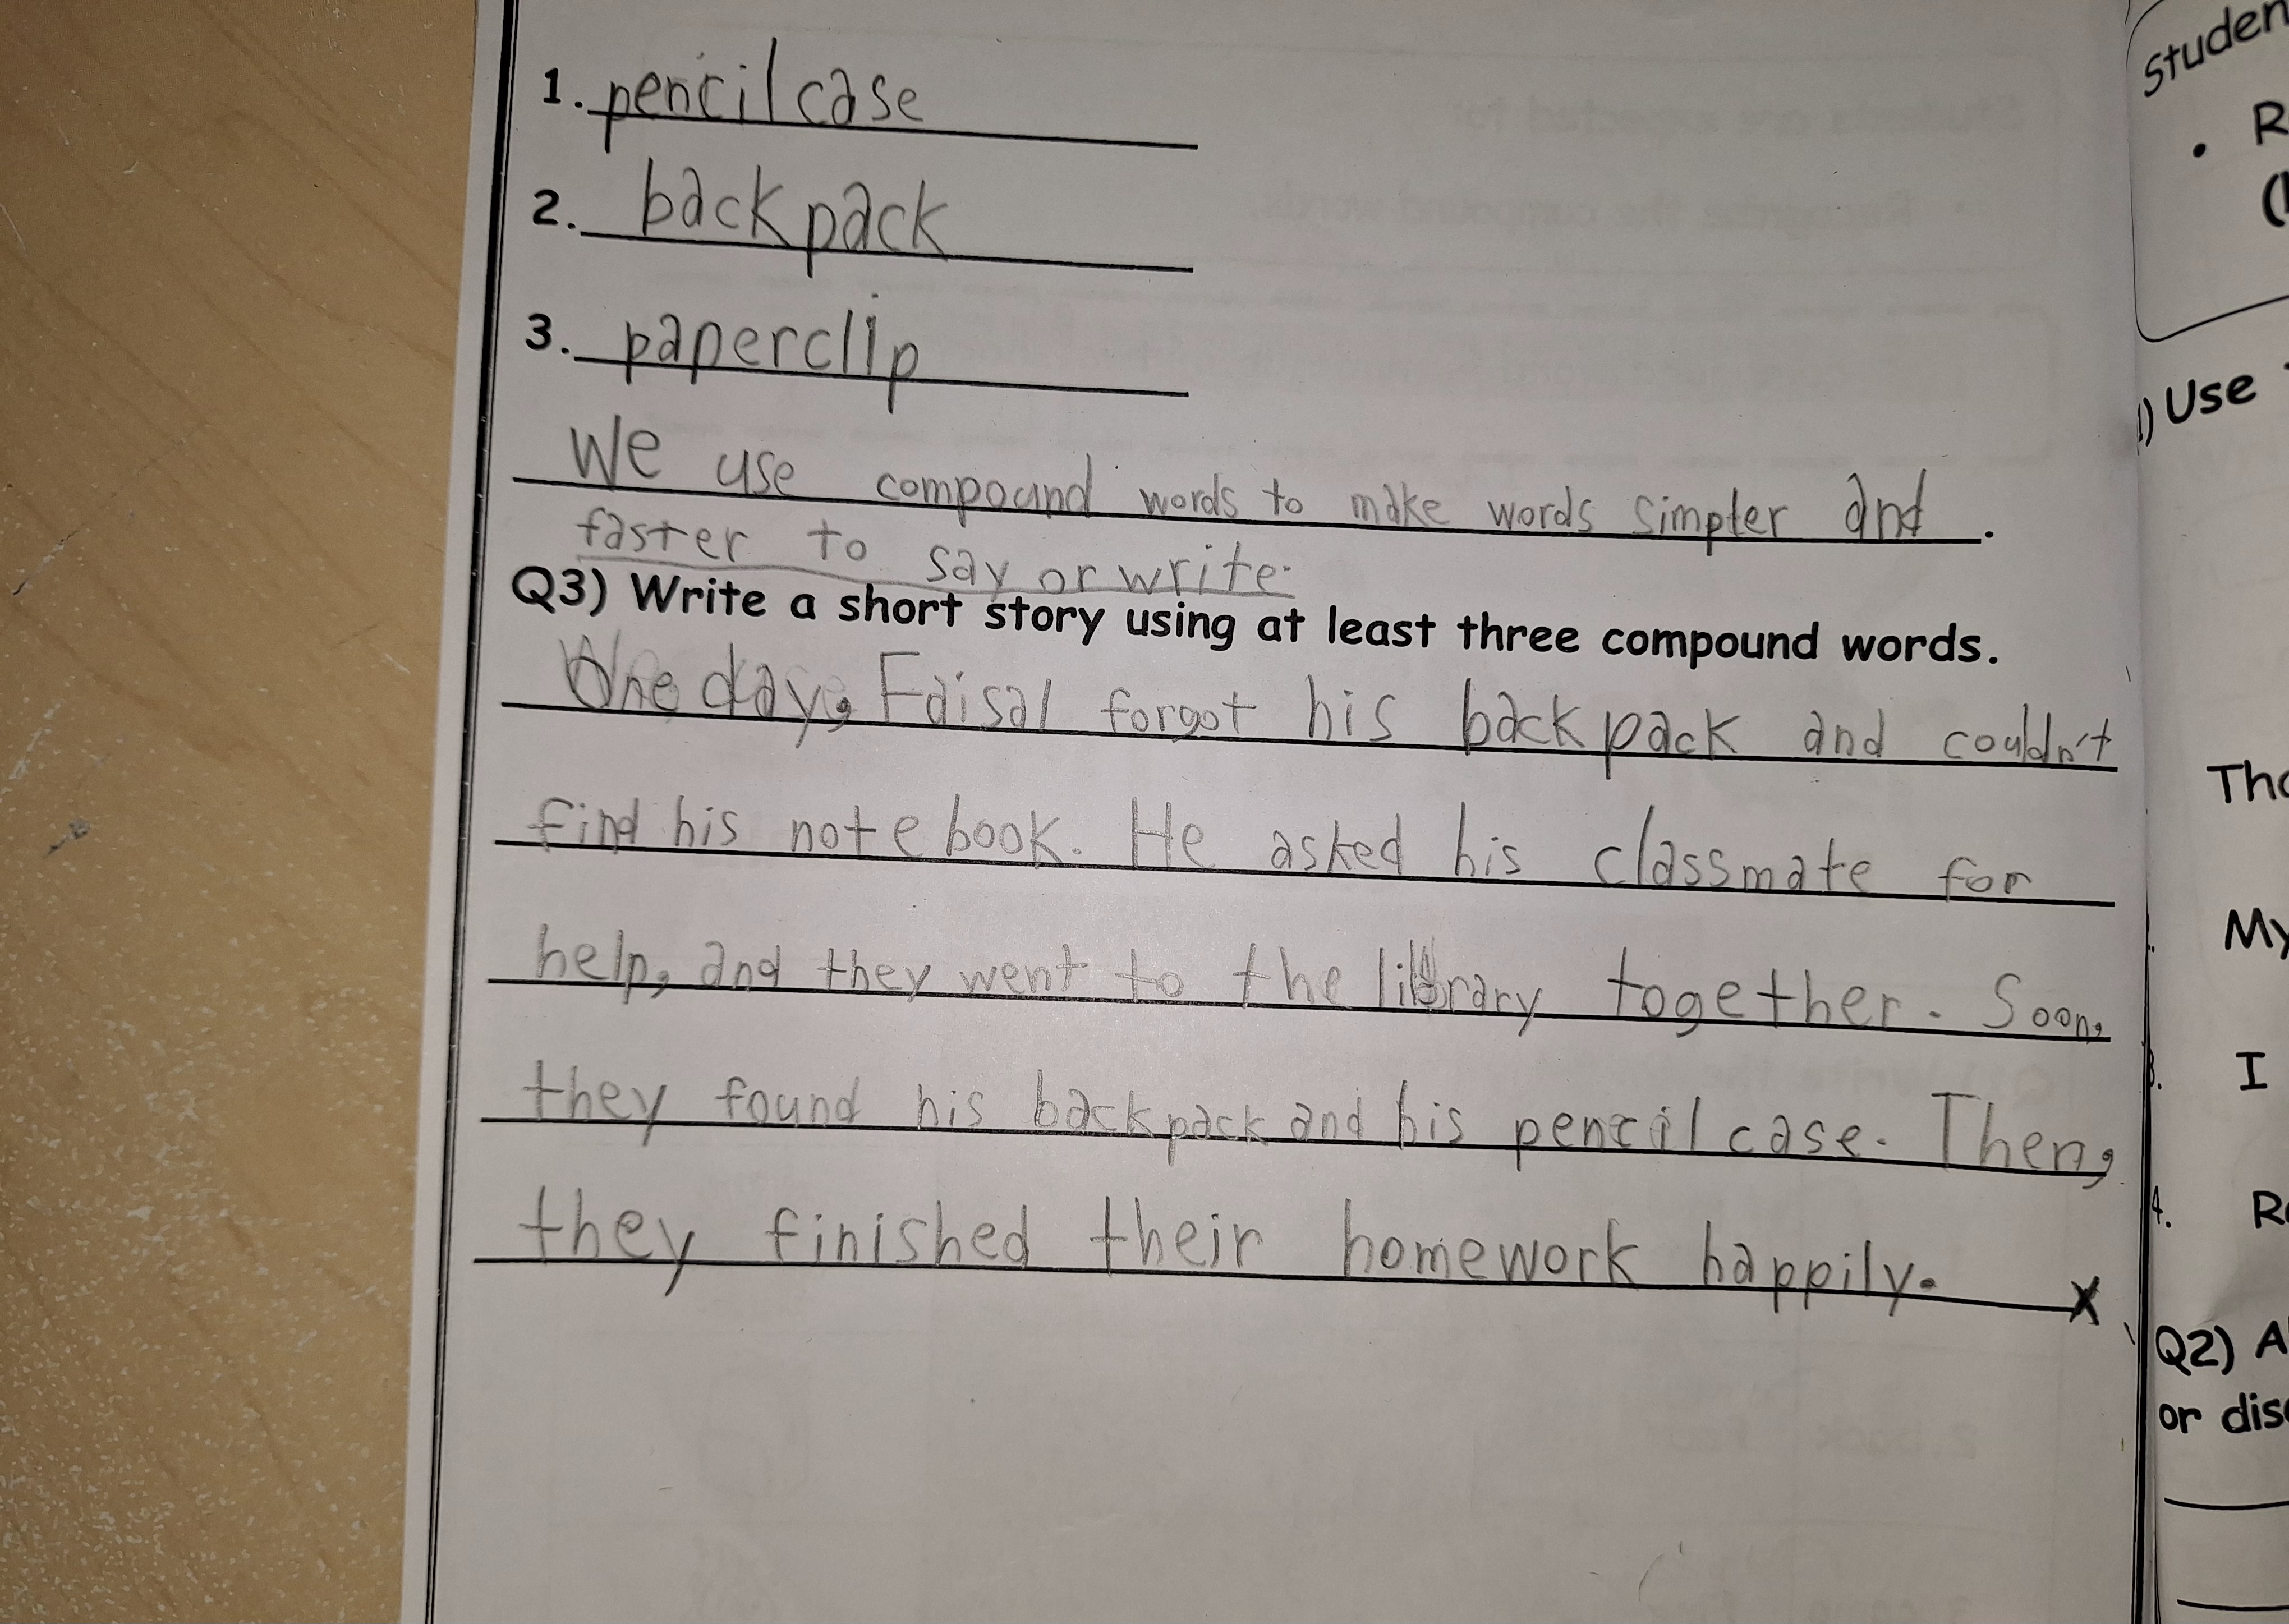 1. pencilcase
2. backpack
3. paperclip
We use compound words to make words simpler and .
faster to say or write.
Q3) Write a short story using at least three compound words.
One day, Faisal forgot his backpack and couldn't
find his notebook. He asked his classmate for
help, and they went to the library together. Soon,
they found his backpack and his pencil case. Then,
they finished their homework happily.
Studen
• R
(
1) Use
The
My
3. I
4. Re
Q2) A
or dis